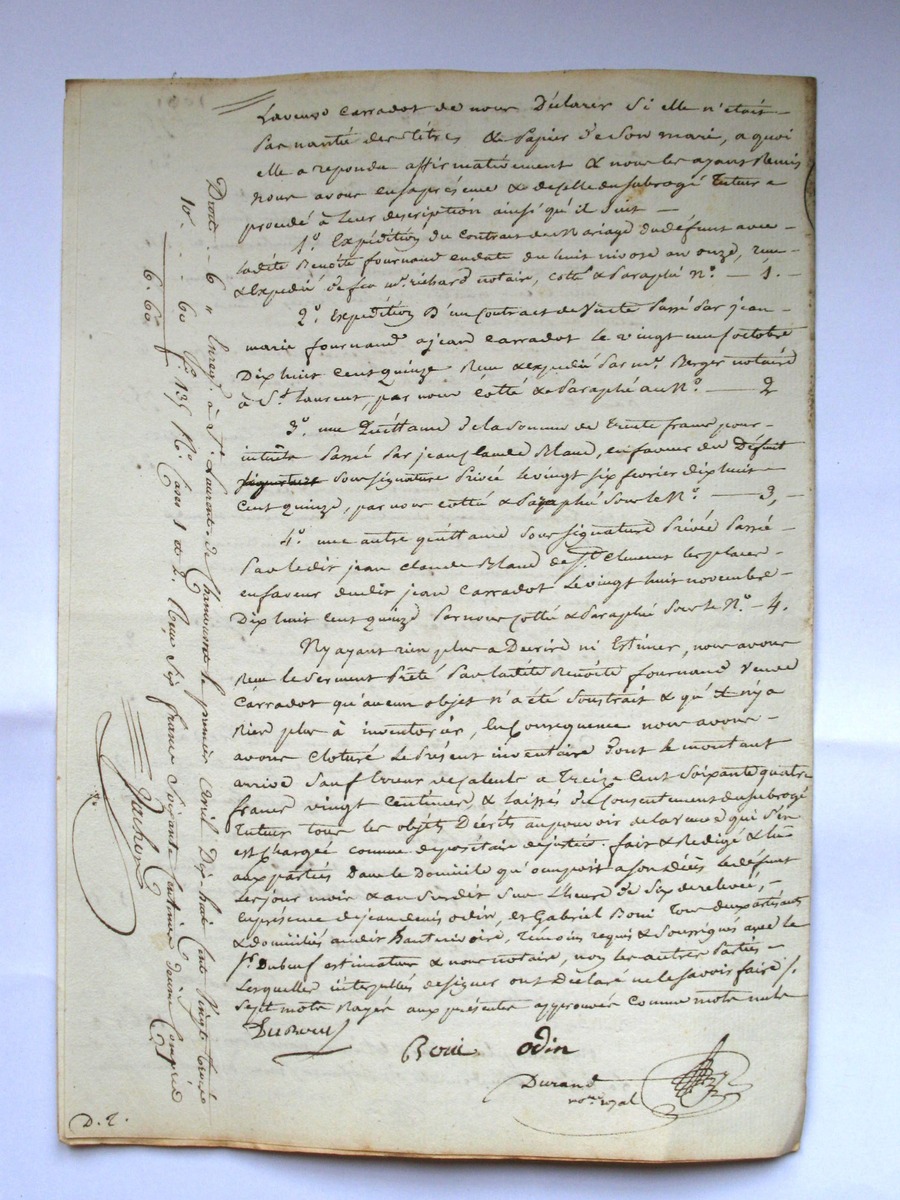 La veuve Carradot de nous Déclarer Si elle n'était
pas nantie des titres & papier de Son mari, a quoi
elle a repondu affirmativement & nous les ayans Remis
nous avons en sa présence & de celle du subrogé tuteur
procédé à leur description ainsi qu'il suit
1.° Expédition du Contrat de Mariage du défunt avec
ladite Benoite fournand en date du huit nivose an onze, reçu
& Expédié de feu m.e richard notaire, cotté & Paraphé N.° — 1. —
2.° Expédition D'un Contract de Vente Passé Par jean
marie fournand a jean Carradot le vingt un octobre
Dix huit cent Quinze Reçu & expédié Par m.e Berger notaire
à S.t Laurent, par nous Cotté & Paraphé au N.° — 2
3.° une Quittance de la Somme de Trente francs pour
intérêts Passé Par jean Claude Bland, en faveur du Défunt
Sous signature Privée le vingt six fevrier dix huit
Cent quinze, par nous cotté & Paraphé Sous le N.° — 3, —
4.° une autre quittance Sous signature Privée Passée
Par le dit jean Claude Bland de S.t Clement les places
en faveur du dit jean Carradot le vingt huit novembre
Dix huit cent quinze Par nous Cotté & Paraphé Sous le N.° — 4.
N'y ayant rien plus a Décrire ni Estimer, nous avons
Reçu le Serment Prêté Par ladite Benoite fournand Veuve
Carradot qu'aucun objet n'a été Soustrait & qu'il n'y a
Rien plus à inventorier, En Consequence nous avons
avons Cloturé le Présent inventaire Dont le montant
arrive Sauf Erreur de Calcule a Treize Cent Soixante quatre
francs vingt Centimes, & laissés du Consentement du subrogé
Tuteur tous les objets Décrits au pouvoir de la veuve qui s'en
est Chargée comme depositaire de justice. fait & Redigé & lu
aux parties Dans le Domicile qu'occupoit a son décès le défunt
Les jour mois & an Susdit Sur L'heure de Six de relevée,
en présence de jean denis odin, et Gabriel Boui Tous deux
& domiciliés au dit hauterivoire, Témoins requis & Soussignés avec le
S.r Duboeuf estimateur & nous notaire, non les autres Parties
Lesquelles interpellés de signer ont Déclaré ne le savoir faire
Sept mots Rayés aux présentes approuvés Comme mots nuls
DuBoeuf
Boui odin
Durand
no.re royal
Droit . . 6 " Enreg.é à S.t Laurent de Chamousset le premier avril Dix-huit Cent Vingt trois
10.e . . 60 f.o 135 R.o Cases 1 & 2. Reçu Six francs Soixante Centimes dixieme Compris
6. 60
Vachon
D. E.